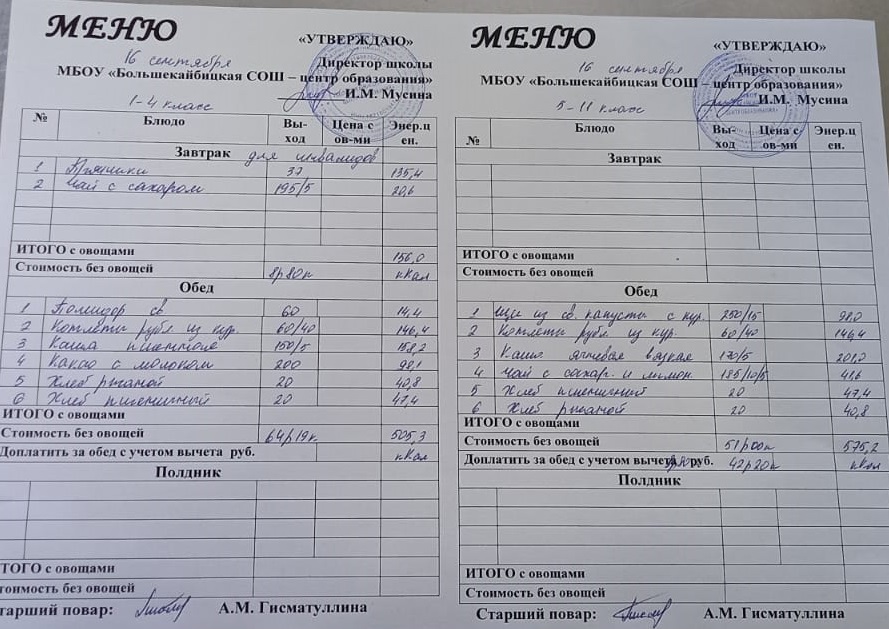 МЕНЮ
«УТВЕРЖДАЮ»
16 сентября
Директор школы
МБОУ «Большекайбицкая СОШ – центр образования»
И.М. Мусина
1-4 класс
№ Блюдо Вы-ход Цена с ов-ми Энер.ц ен.
Завтрак для инвалидов
1 Пряники 37 135,4
2 Чай с сахаром 195/5 20,6
ИТОГО с овощами 156,0
Стоимость без овощей 8р80к кКал
Обед
1 Помидор св 60 14,4
2 Котлеты рубл. из кур. 60/40 146,4
3 Каша пшенная 150/5 158,2
4 Какао с молоком 200 98,1
5 Хлеб ржаной 20 40,8
6 Хлеб пшеничный 20 47,4
ИТОГО с овощами
Стоимость без овощей 64р19к. 505,3
Доплатить за обед с учетом вычета руб. кКал
Полдник
ТОГО с овощами
тоимость без овощей
тарший повар: А.М. Гисматуллина
МЕНЮ
«УТВЕРЖДАЮ»
16 сентября
Директор школы
МБОУ «Большекайбицкая СОШ – центр образования»
И.М. Мусина
5-11 класс
№ Блюдо Вы-ход Цена с ов-ми Энер.ц ен.
Завтрак
ИТОГО с овощами
Стоимость без овощей
Обед
1 Щи из св. капусты с кур. 250/15 98,0
2 Котлеты рубл. из кур. 60/40 146,4
3 Каша ячневая вязкая 170/5 201,0
4 Чай с сахар. и лимон 185/10/5 41,6
5 Хлеб пшеничный 20 47,4
6 Хлеб ржаной 20 40,8
ИТОГО с овощами
Стоимость без овощей 51р00к 575,2
Доплатить за обед с учетом вычета руб. 42р20к кКал
Полдник
ИТОГО с овощами
Стоимость без овощей
Старший повар: А.М. Гисматуллина